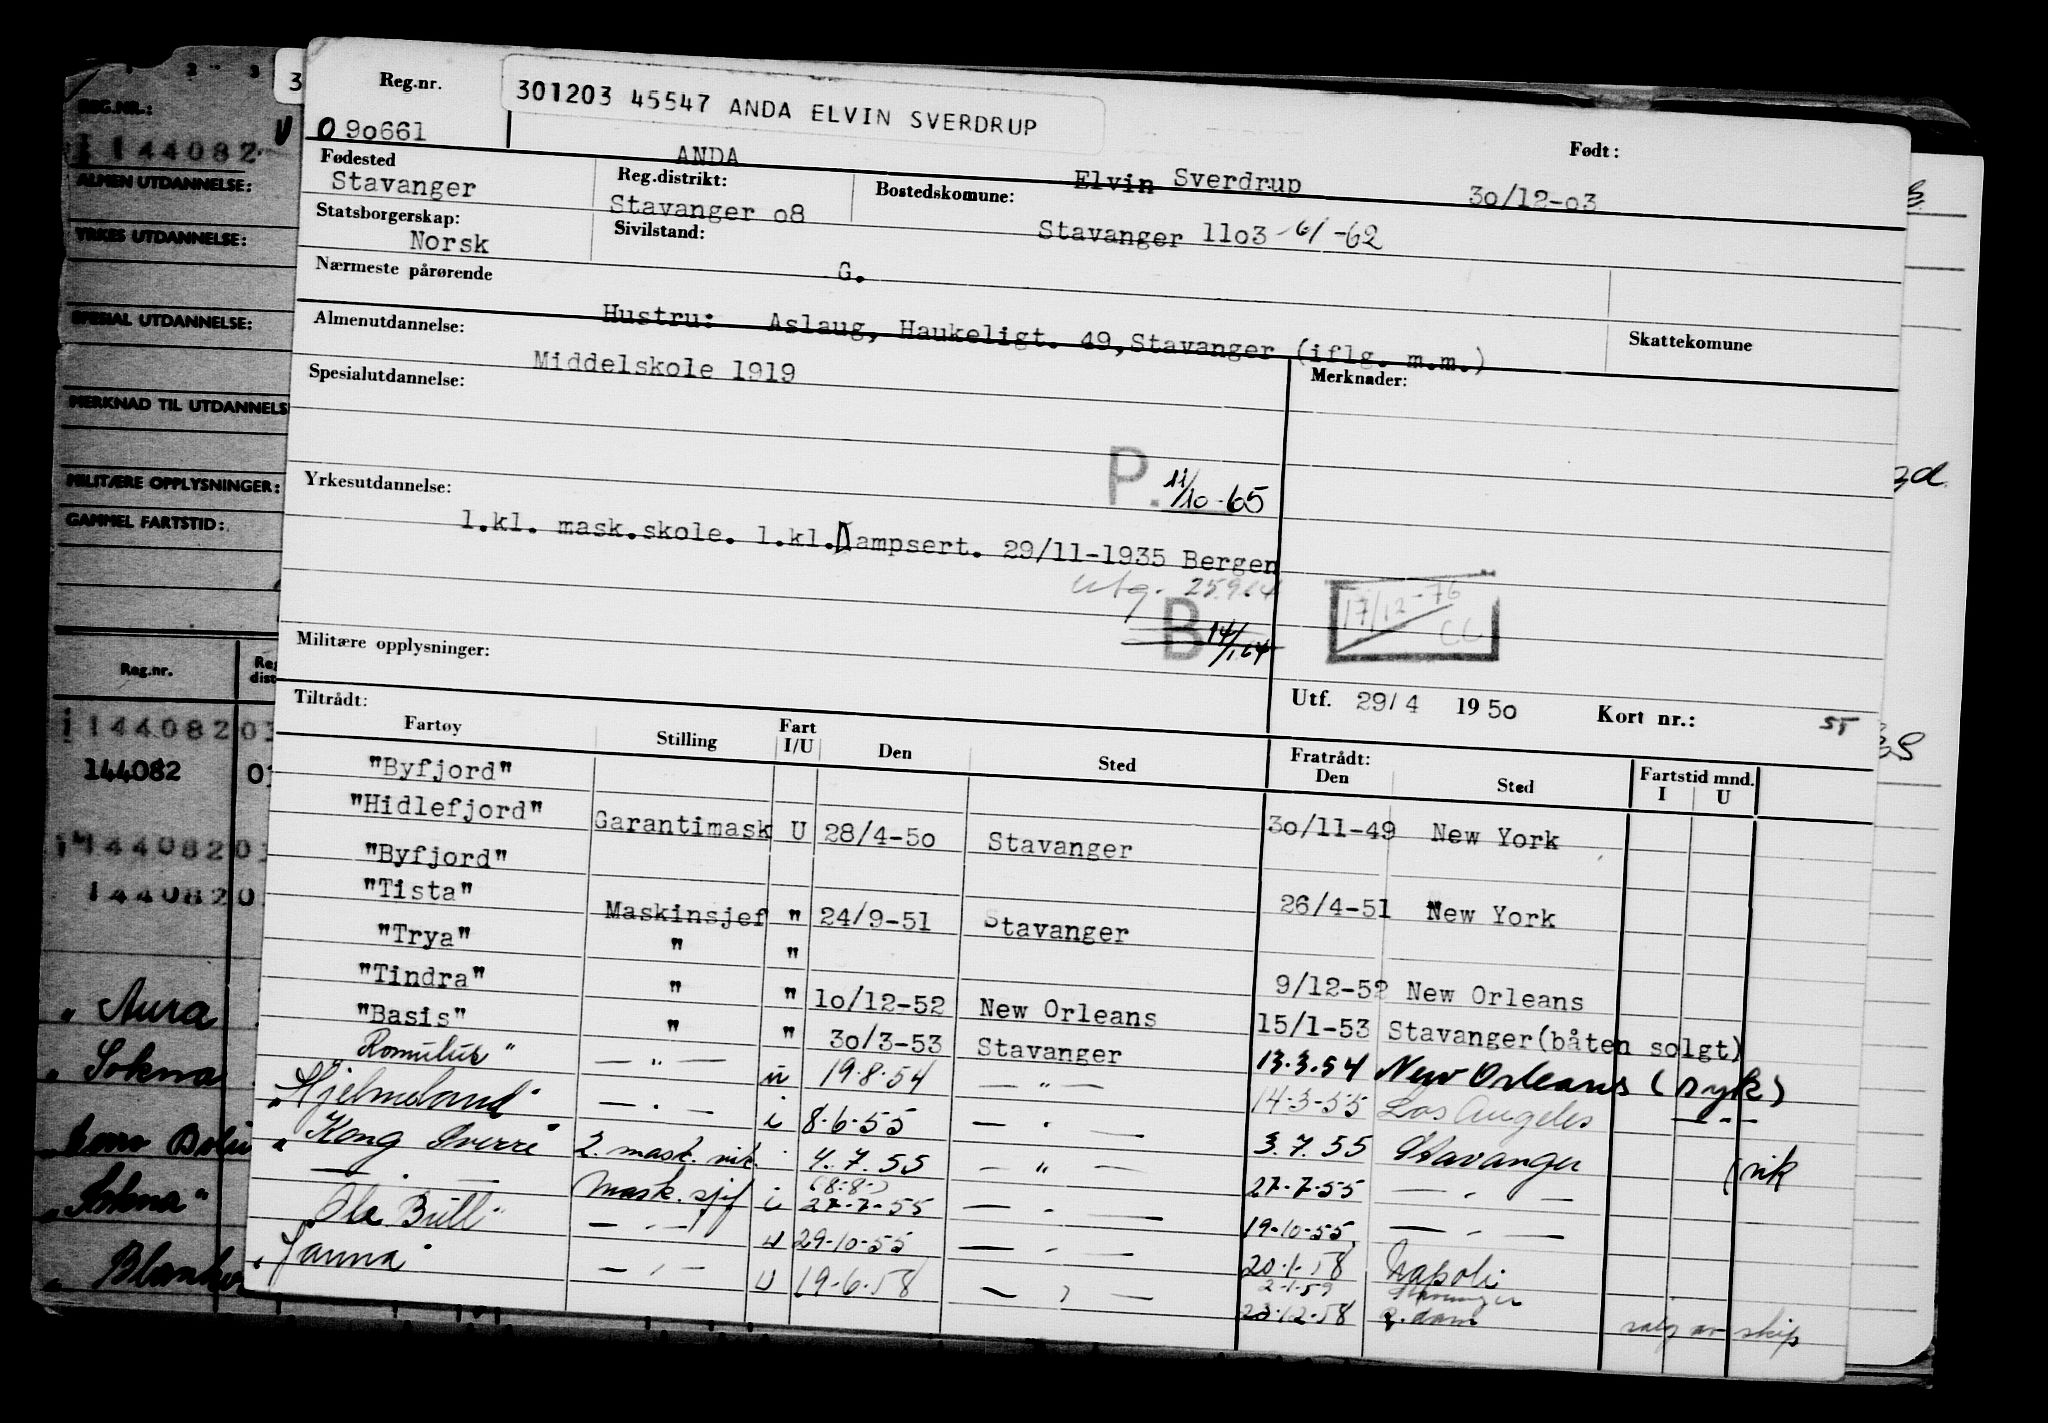 Reg.nr.
301203 45547 ANDA ELVIN SVERDRUP
O 90661
ANDA
Elvin Sverdrup
Født:
30/12-03
Fødested
Stavanger
Reg.distrikt:
Stavanger o8
Bostedskomune:
Stavanger 11o3 -6/1-62
Statsborgerskap:
Norsk
Sivilstand:
G.
Nærmeste pårørende
Hustru: Aslaug, Haukeligt. 49, Stavanger (iflg. m.m.)
Skattekomune
Almenutdannelse:
Middelskole 1919
Spesialutdannelse:
Merknader:
P. 11/10-65
Yrkesutdannelse:
1.kl. mask.skole. 1.kl.Dampsert. 29/11-1935 Bergen
utg. 25.9.64
B 14/1.64
17/12-76
CC
Militære opplysninger:
Utf. 29/4 1950 Kort nr.: 55
Tiltrådt:
Fartøy Stilling Fart I/U Den Sted Fratrådt: Den Sted Fartstid mnd. I U
"Byfjord" 30/11-49 New York
"Hidlefjord" Garantimask U 28/4-50 Stavanger
"Byfjord" 26/4-51 New York
"Tista" Maskinsjef " 24/9-51 Stavanger
"Trya" " " 9/12-52 New Orleans
"Tindra" " " 10/12-52 New Orleans 15/1-53 Stavanger(båten solgt)
"Basis" " " 30/3-53 Stavanger 13.3.54 New Orleans (syk)
Romulus" — " — u 19.8.54 — " — 14-3-55 Los Angeles — " —
"Hjelmeland" — " — i 8.6.55 — " — 3.7.55 Stavanger
" Kong Sverre 2. mask. vik. 4.7.55 — " — 27-7-55 — " — (vik
— " — Mask. sjef i (8.8.) 27-7-55 — " — 19-10-55 — " —
"Ole Bull" — " — u 29-10-55 — " — 20.1.58 Napoli
2-1-59 Stavanger
"Hanna" — " — U 19.6.58 — " — 23.12.58 R.dam salg av skip
REG.NR.:
144082
ALMEN UTDANNELSE:
YRKES UTDANNELSE:
SPESIAL UTDANNELSE:
MERKNAD TIL UTDANNELS
MILITÆRE OPPLYSNINGER:
GAMMEL FARTSTID:
Reg.nr. Reg dist
144082 03
144082 0
144082 03
144082 0
" Aura
" Sokna
"Sokna"